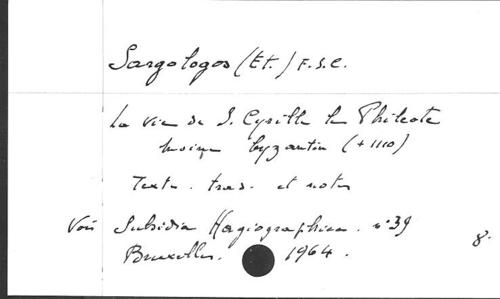 Sargologos (Et.) F.S.C.
La vie de S. Cyrille le Philéote
moine byzantin (+ 1110)
Texte. trad. et notes
Voir Subsidia Hagiographica. n° 39
Bruxelles. 1964.
8°